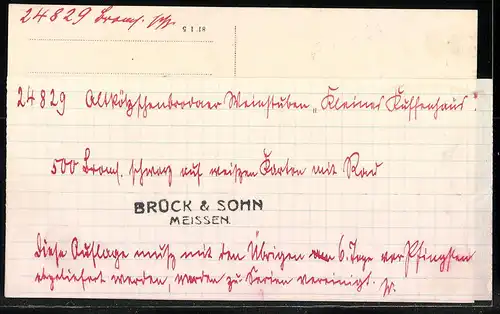 24829 Broms. sch.
81 1 5
24829 Altkötzschenbrodaer Weinstuben „Kleines Kuffenhaus".
500 Broms. schwarz auf weißen Karten mit Rand
BRÜCK & SOHN
MEISSEN.
Diese Auflage muß mit den Übrigen am 6. Tage vor Pfingsten
abgeliefert werden, werden zu Serien vereinigt. W.